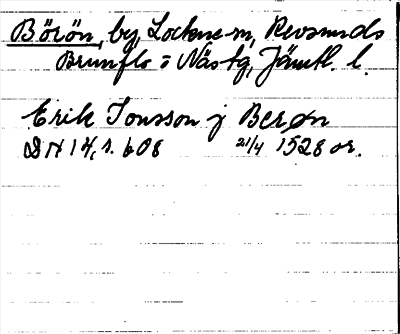 Börön, by, Lockne sn, Revsunds
Brunflo o Näs tg, Jämtl. l.
Erik Jonsson j Berøn
DN 14, s. 608 21/4 1528 or.